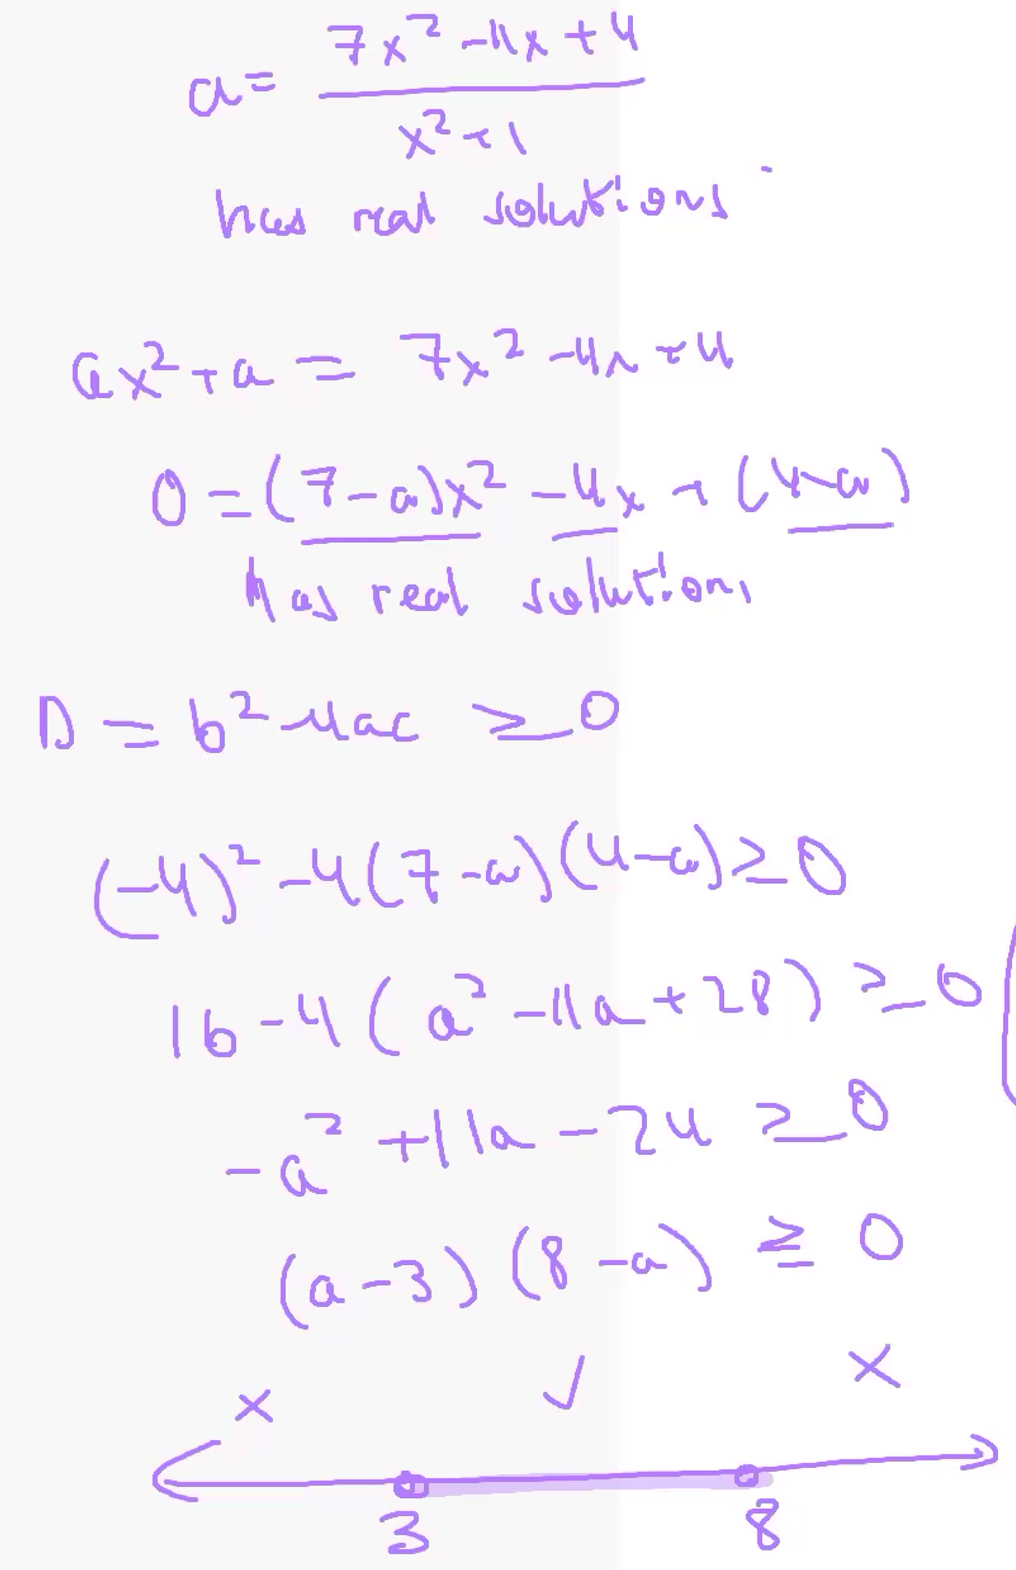 a = (7x² - 4x + 4) / (x² + 1)
has real solutions
ax² + a = 7x² - 4x + 4
0 = (7-a)x² - 4x + (4-a)
has real solutions
D = b² - 4ac ≥ 0
(-4)² - 4(7-a)(4-a) ≥ 0
16 - 4(a² - 11a + 28) ≥ 0
-a² + 11a - 24 ≥ 0
(a-3)(8-a) ≥ 0
x ✓ x
3 8